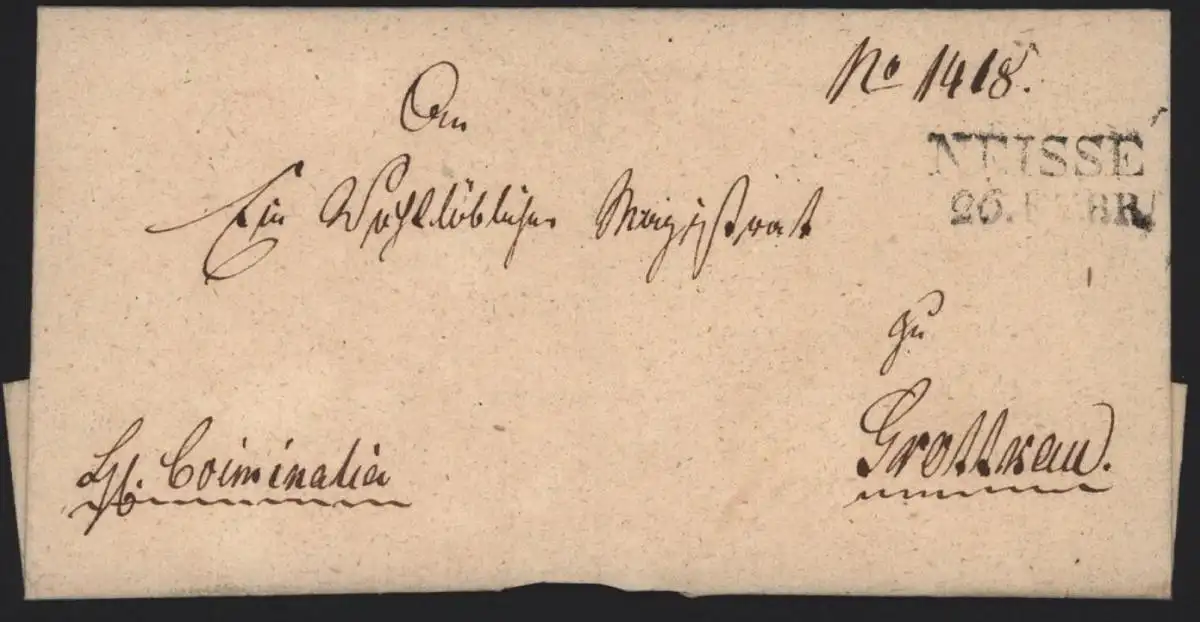 No 1418.
NEISSE
26. FEBR.
An
Ein Wohllöblicher Magistrat
zu
Grottkau.
Criminalia